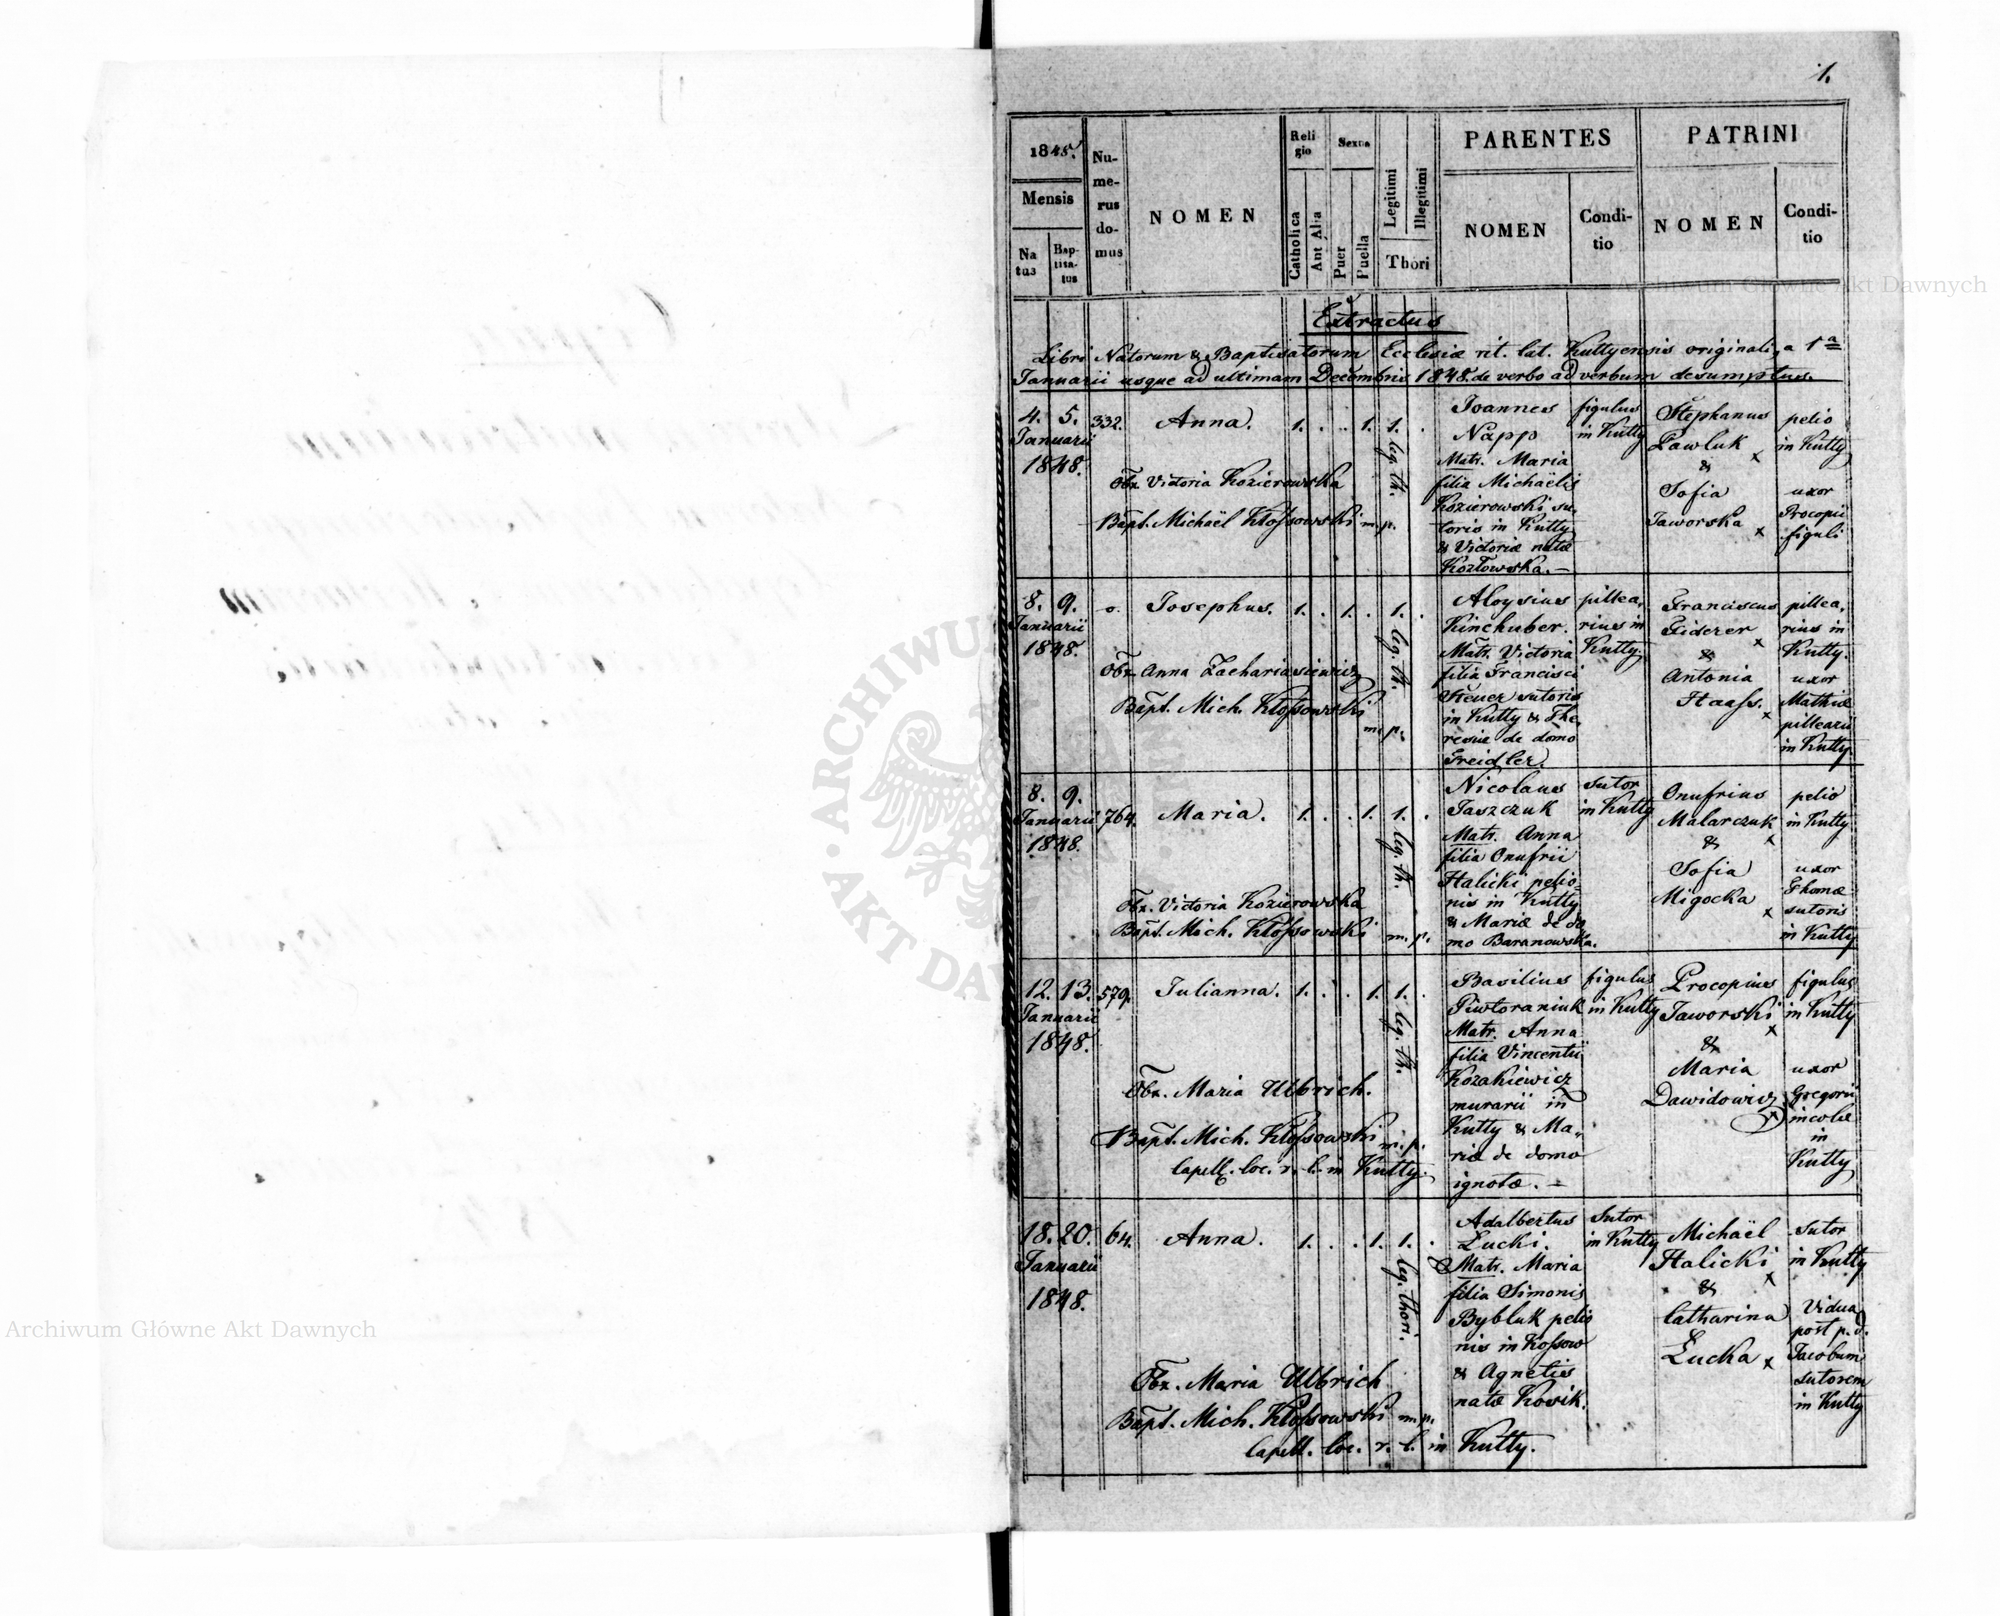 1.
1848.
Mensis
Na
tus
Bap-
tisa-
tus
Nu-
me-
rus
do-
mus
NOMEN
Reli
gio
Catholica
Aut Alia
Sexus
Puer
Puella
Legitimi
Illegitimi
Thori
PARENTES
NOMEN
Condi-
tio
PATRINI
NOMEN
Condi-
tio
Extractus
Libri Natorum & Baptisatorum Ecclesiæ rit. lat. Kuttyensis originalis a 1ª
Januarii usque ad ultimam Decembris 1848 de verbo ad verbum desumptus.
4. 5.
Januarii
1848.
332.
Anna.
1. . . 1. 1. .
leg. th.
Obx. Victoria Kozierowska
Bapt. Michaël Kłossowski m. p.
Joannes
Napp
Matr. Maria
filia Michaëlis
Kozierowski su,
toris in Kutty
& Victoriæ natæ
Kozłowska. —
figulus
in Kutty
Stephanus
Pawluk x
&
Sofia
Jaworska x
pelio
in Kutty
uxor
Procopii
figuli
8. 9.
Januarii
1848.
o.
Josephus.
1. . 1. . 1. .
leg. th.
Obx. Anna Zachariasiewicz
Bapt. Mich. Kłossowski
m. p.
Aloysius
Kinchuber.
Matr. Victoria
filia Francisci
Steuer sutoris
in Kutty & The,
resiæ de domo
Freidler.
pillea,
rius in
Kutty.
Franciscus
Fiderer x
&
Antonia
Haass. x
pillea,
rius in
Kutty.
uxor
Mathiæ
pillearii
in Kutty.
8. 9.
Januarii
1848.
764.
Maria.
1. . . 1. 1. .
leg. th.
Obx. Victoria Kozierowska
Bapt. Mich. Kłossowski m. p.
Nicolaus
Jaszczuk
Matr. Anna
filia Onufrii
Halicki pelio-
nis in Kutty
& Mariæ de do
mo Baranowska.
sutor
in Kutty
Onufrius
Malarczuk x
&
Sofia
Migocka x
pelio
in Kutty
uxor
Thomæ
sutoris
in Kutty
12. 13.
Januarii
1848.
579.
Julianna.
1. . . 1. 1. .
leg. th.
Obx. Maria Ulbrich.
Bapt. Mich. Kłossowski m. p.
Capell. loc. r. l. in Kutty.
Basilius
Piwtoraniuk
Matr. Anna
filia Vincentii
Kozakiewicz
murarii in
Kutty & Ma,,
riæ de domo
ignotæ. —
figulus
in Kutty
Procopius
Jaworski x
&
Maria
Dawidowicz x
figulus
in Kutty
uxor
Gregorii
incolæ
in
Kutty
18. 20.
Januarii
1848.
64.
Anna.
1. . . 1. 1. .
leg. thori.
Obx. Maria Ulbrich
Bapt. Mich. Kłossowski m. p.
Capell. loc. r. l. in Kutty.
Adalbertus
Łucki.
Matr. Maria
filia Simonis
Bybluk pelio
nis in Kossow
& Agnetis
natæ Kosik.
sutor
in Kutty
Michaël
Halicki x
&
Catharina
Łucka x
sutor
in Kutty
Vidua
post p. d.
Jacobum
sutorem
in Kutty
Archiwum Główne Akt Dawnych
Archiwum Główne Akt Dawnych